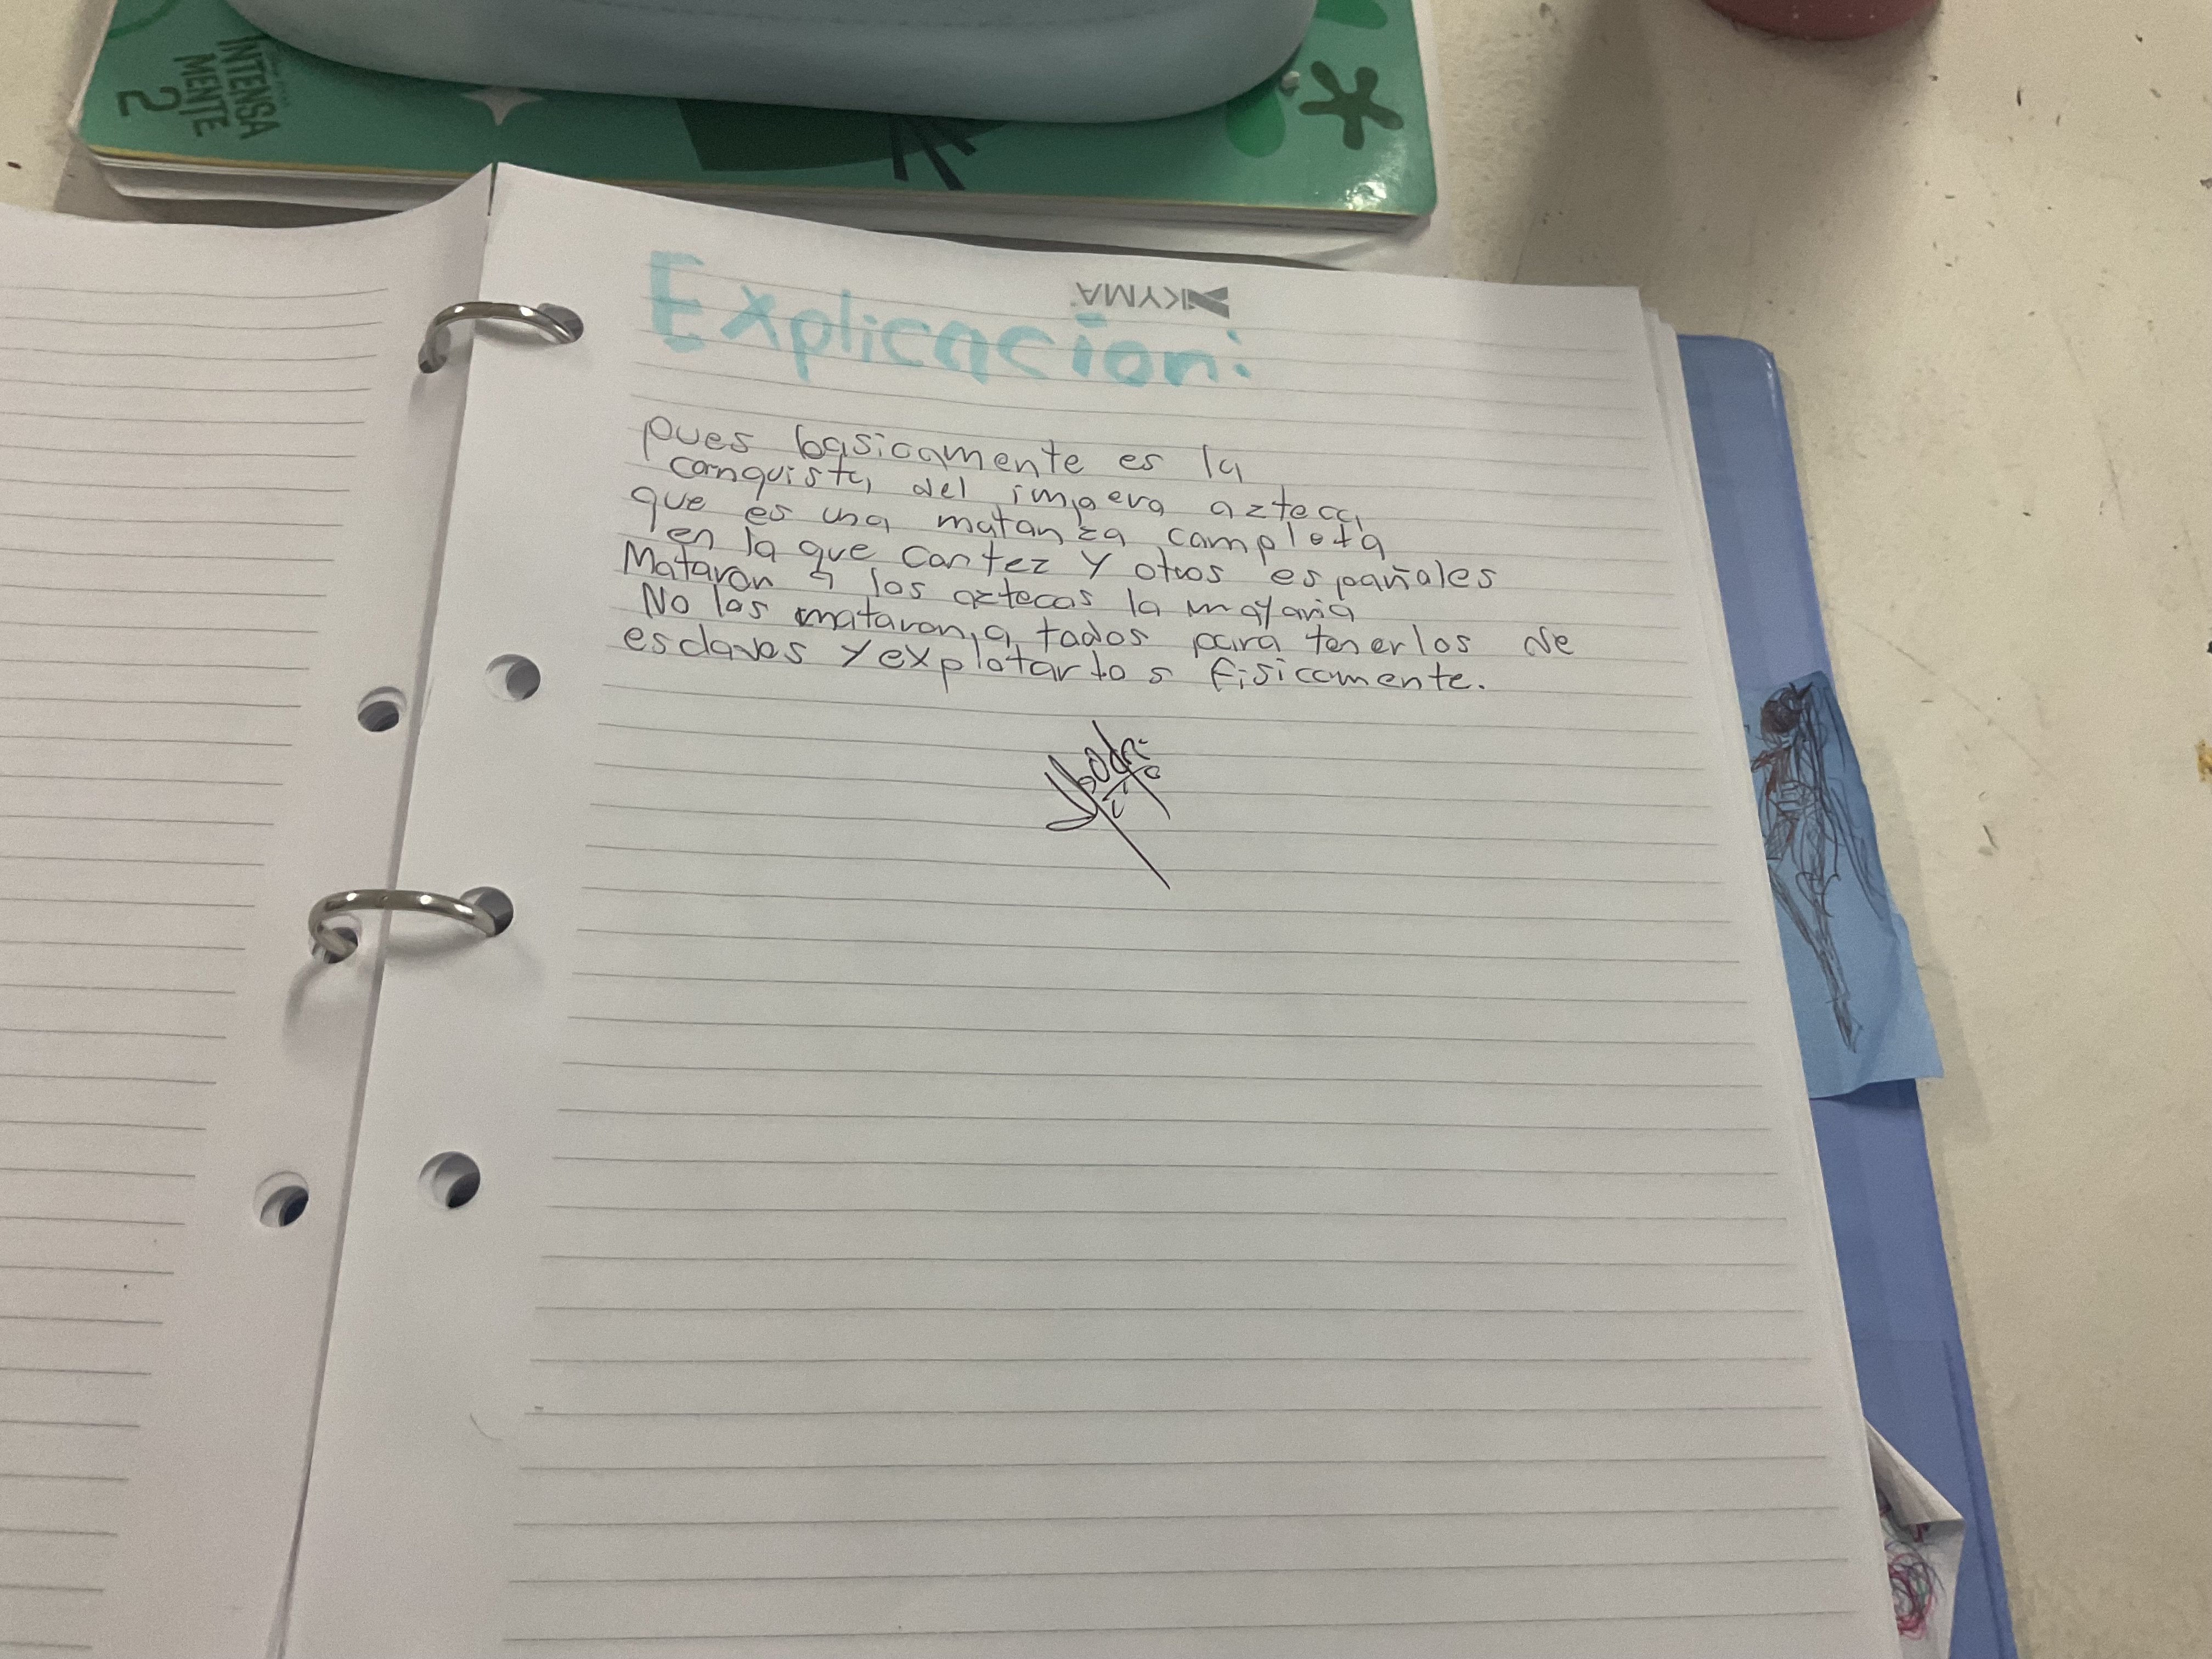 INTENSA
MENTE
2
KYMA
Explicacion:
pues basicamente es la
conquista del impero azteca
que es una matanza completa
en la que Cortez y otros españoles
Mataron a los aztecas la mayoria
No los mataron a todos para tenerlos de
esclavos y explotarlos fisicamente.